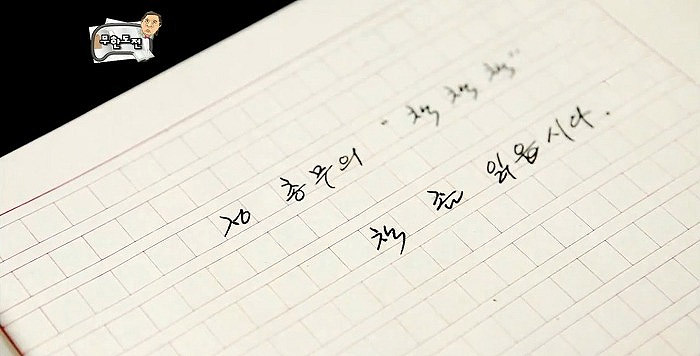 무한도전
정 총무의 "책책책"
책 좀 읽읍시다.